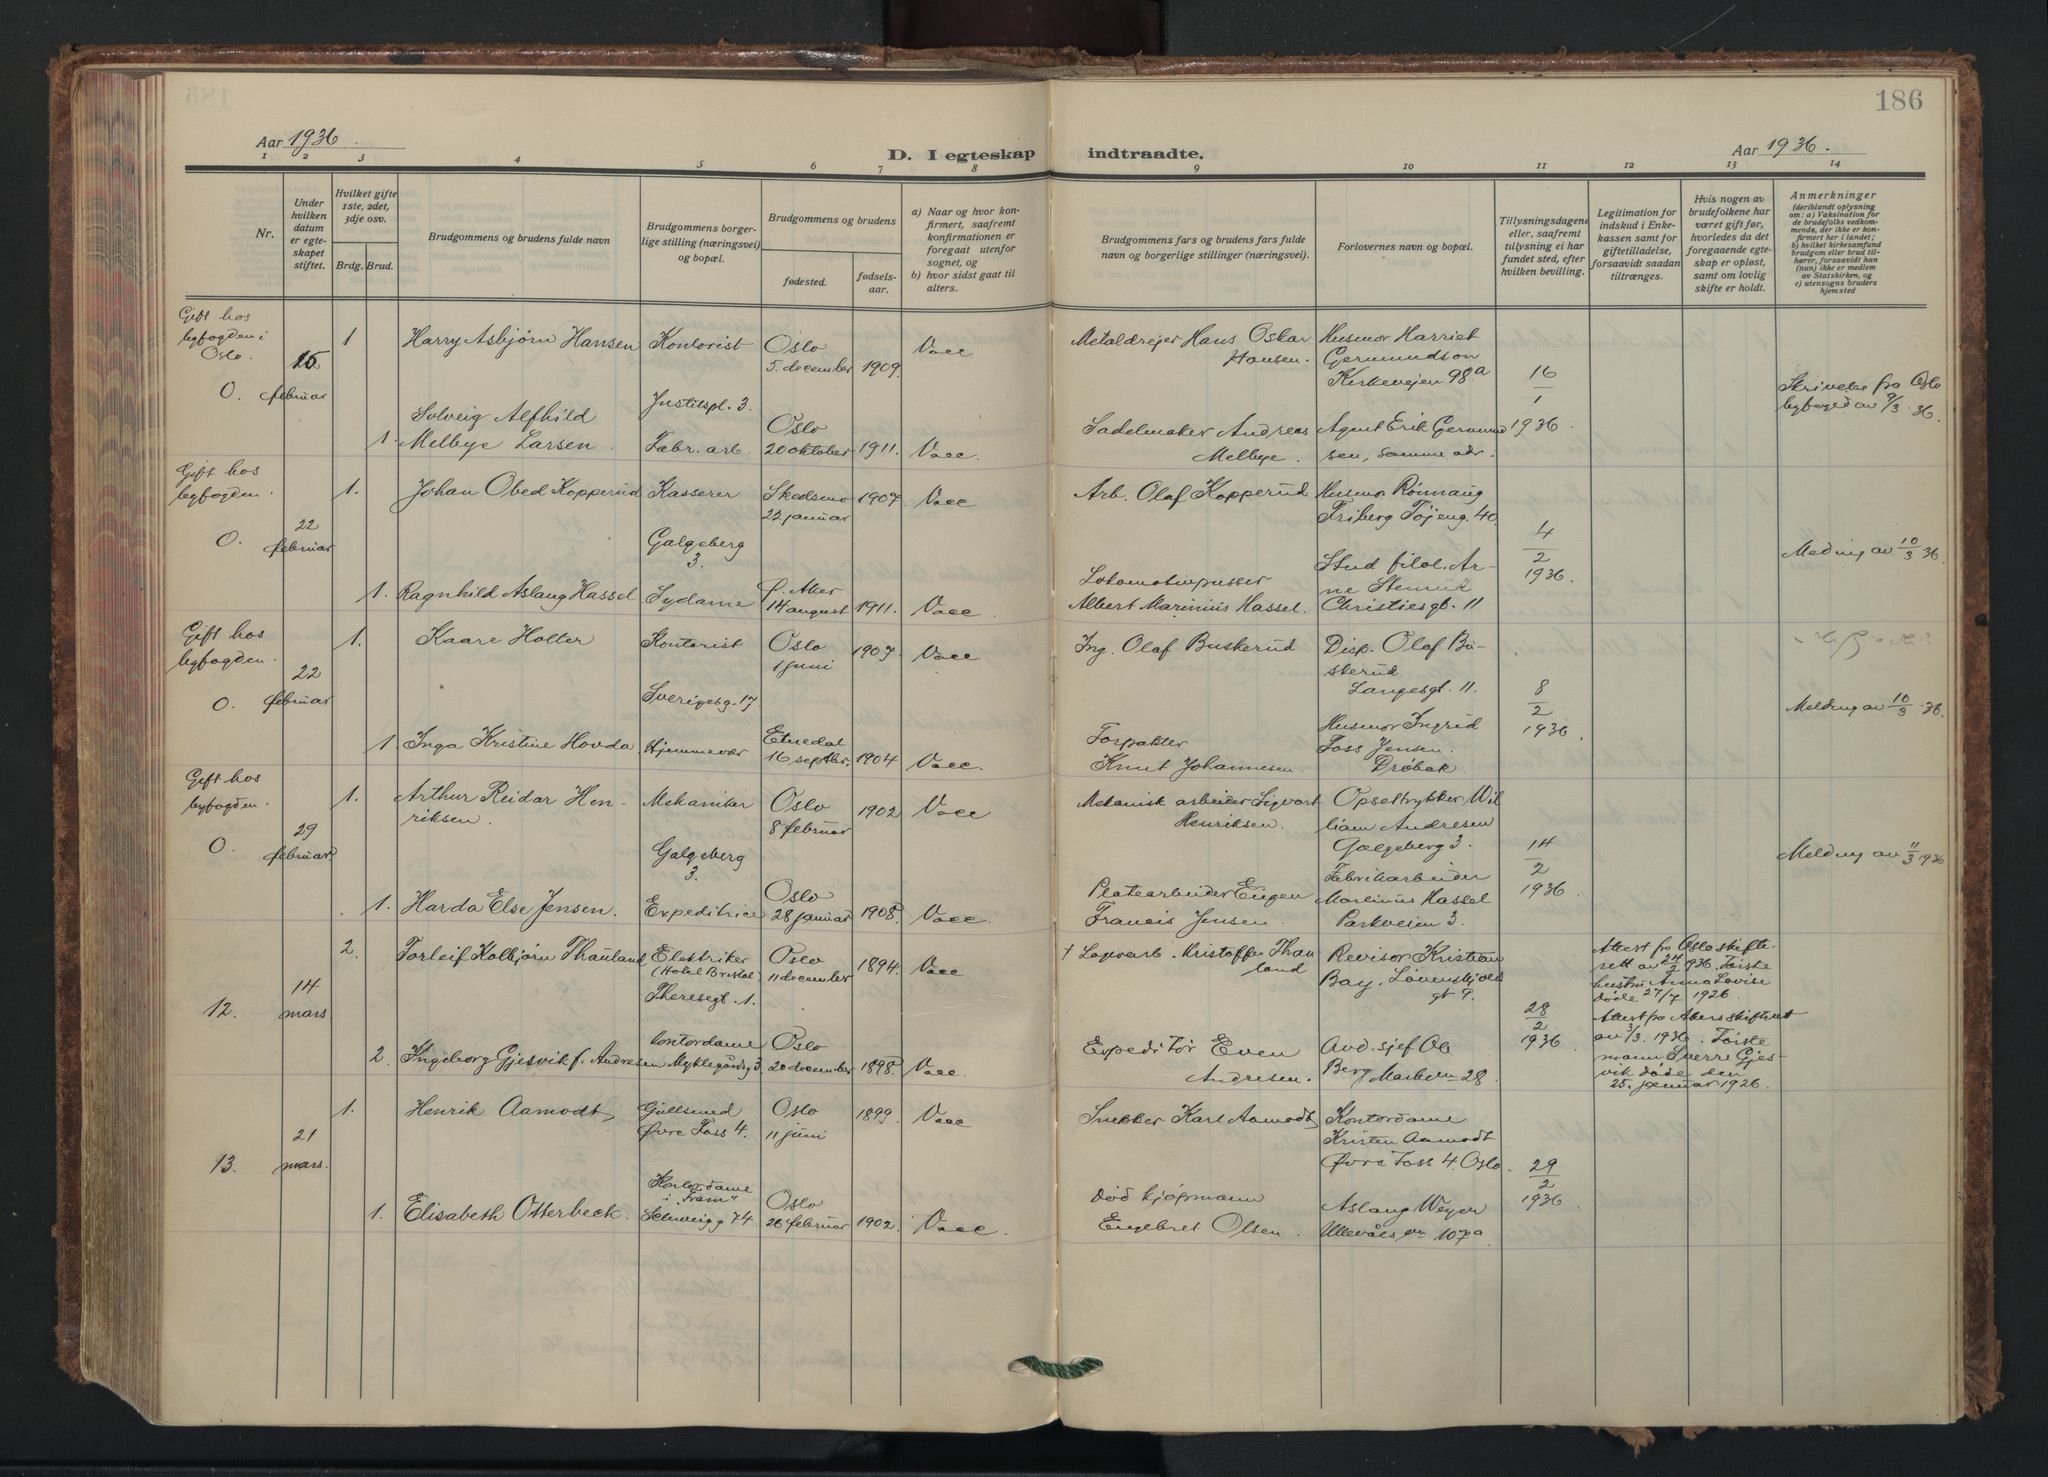 185
186
Aar 1936.
D. I egteskap indtraadte.
Aar 1936.
1 2 3 4 5 6 7 8 9 10 11 12 13 14
Nr.
Under hvilken datum er egteskapet stiftet.
Hvilket gifte 1ste, 2det, 3dje osv.
Brdg. Brud.
Brudgommens og brudens fulde navn
Brudgommens borgerlige stilling (næringsvei) og bopæl.
Brudgommens og brudens
fødested.
fødselsaar.
a) Naar og hvor konfirmert, saafremt konfirmationen er foregaat utenfor sognet, og
b) hvor sidst gaat til alters.
Brudgommens fars og brudens fars fulde navn og borgerlige stillinger (næringsvei).
Forlovernes navn og bopæl.
Tillysningsdagene eller, saafremt tillysning ei har fundet sted, efter hvilken bevilling.
Legitimation for indskud i Enkekassen samt for giftetilladelse, forsaavidt saadan tiltrænges.
Hvis nogen av brudefolkene har været gift før, hvorledes da det foregaaende egteskap er opløst, samt om lovlig skifte er holdt.
Anmerkninger
(deriblandt oplysning om: a) Vaksination for de brudefolks vedkommende, der ikke er konfirmert her i landet; b) hvilket kirkesamfund brudgom eller brud tilhører, forsaavidt han (hun) ikke er medlem av Statskirken, og c) utensogns bruders hjemsted
Gift hos byfogden i Oslo.
0. 15 februar
1 Harry Asbjørn Hansen Kontorist Oslo 5. december 1909. Vacc
Justitspl. 3.
Metaldreier Hans Oskar Hansen.
Husmor Harriet
Germundson
Kirkeveien 98a
16/1 1936.
Skrivelse fra Oslo
byfoged av 9/3. 36.
Solveig Alfhild
1. Melbye Larsen. Fabr. arb. Oslo 20 oktober 1911. Vacc.
Sadelmaker Andreas Melbye.
Agent Erik Germund
sen, samme adr.
Gift hos byfogden.
0. 22 februar
1. Johan Obed Kopperud Kasserer Skedsmo 22 januar 1907. Vacc
Galgeberg 3.
Arb. Olaf Kopperud
Husmor Rønnaug
Friberg Tøjeng. 40
4/2 1936.
Melding av 10/3 36
1. Ragnhild Aslaug Hassel Sydame Ø. Aker 14 august 1911. Vacc.
Lokomotivpusser
Albert Marinius Hassel.
Stud filol. Ar-
ne Stenrud
Christiesgt. 11
Gift hos byfogden.
0. 22 februar
1. Kaare Holter Kontorist Oslo 1 juni 1907. Vacc
Sverigesg. 17
Ing. Olaf Buskerud
Disp. Olaf Bu-
skerud
Langesgt. 11.
8/2 1936.
Melding av 10/3 36.
1. Inga Kristine Hovda Hjemmevær Etnedal 16 septbr. 1904 Vacc.
Forpakter
Knut Johannesen.
Husmor Ingrid
Foss Jensen.
Drøbak.
Gift hos byfogden.
0. 29 februar
1. Arthur Reidar Hen-
riksen. Mekaniker Oslo 8 februar 1902 Vacc
Galgeberg 3.
Mekanisk arbeider Sigvart
Henriksen.
Opsettrykker Wil
liam Andresen
Galgeberg 3.
14/2 1936.
Melding av 11/3 1936
1. Harda Else Jensen. Expeditrice Oslo 28 januar 1908. Vacc.
Platearbeider Eugen
Francis Jensen
Fabrikarbeider
Marinius Hassel
Parkveien 3.
12. 14 mars.
2. Torleif Kolbjørn Thauland Elektriker (Hotel Bristol) Oslo 11 december 1894. Vacc
Theresegt. 1.
† Lagerarb. Kristoffer Thau-
land
Revisor Kristian
Bay. Løvenskjolds
gt 9.
28/2 1936.
Attest fra Oslo skifte-
rett av 24/2 1936. Første
hustru Anna Lovise
døde 27/7 1926.
2. Ingeborg Gjesvik f. Andresen Kontordame Myklegårdsg. 3 Oslo 20 december 1898. Vacc.
Expeditør Even
Andresen.
Avd. sjef Ole
Berg
28.
Attest fra Akers skifterett
av 3/3. 1936. Første
mann Sverre Gjes-
vik døde den
25. januar 1926.
13. 21 mars.
1. Henrik Aamodt Gullsmed Oslo 11 juni 1899. Vacc
Øvre Foss 4.
Snekker Karl Aamodt
Kontordame
Kristen Aamodt
Øvre Foss 4. Oslo.
29/2 1936
1. Elisabeth Otterbeck. Kontordame i "Fram" Schweigg 74 Oslo 26 februar 1902. Vacc.
Død kjøpmann
Engebret Olsen.
Aslaug Weyer
Ullevålsvn 107a